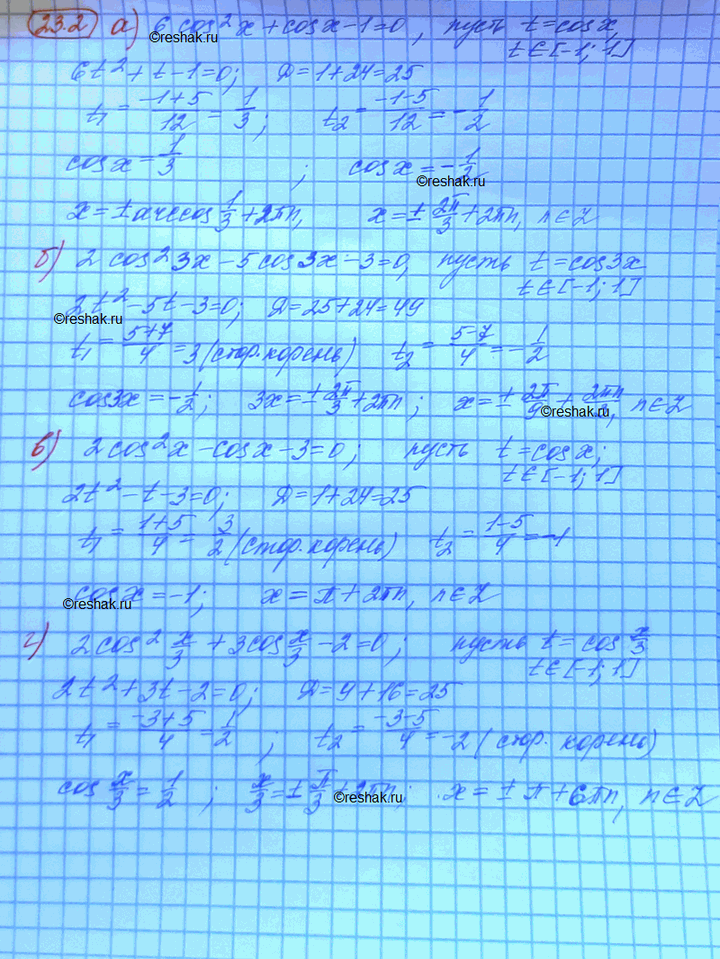 23.2 а) 6 cos²x + cosx - 1 = 0, пусть t = cosx,
©reshak.ru
t ∈ [-1; 1]
6t² + t - 1 = 0; D = 1 + 24 = 25
t₁ = (-1+5)/12 = 1/3; t₂ = (-1-5)/12 = -1/2
cosx = 1/3; cosx = -1/2
©reshak.ru
x = ± arccos 1/3 + 2πn, x = ± 2π/3 + 2πn, n ∈ Z
б) 2 cos²3x - 5 cos3x - 3 = 0, пусть t = cos3x
t ∈ [-1; 1]
2t² - 5t - 3 = 0; D = 25 + 24 = 49
©reshak.ru
t₁ = (5+7)/4 = 3 (стор. корень) t₂ = (5-7)/4 = -1/2
cos3x = -1/2; 3x = ± 2π/3 + 2πn; x = ± 2π/9 + 2πn/3, n ∈ Z
©reshak.ru
в) 2 cos²x - cosx - 3 = 0; пусть t = cosx;
t ∈ [-1; 1]
2t² - t - 3 = 0; D = 1 + 24 = 25
t₁ = (1+5)/4 = 3/2 (стор. корень) t₂ = (1-5)/4 = -1
cosx = -1; x = π + 2πn, n ∈ Z
©reshak.ru
г) 2 cos² x/3 + 3 cos x/3 - 2 = 0; пусть t = cos x/3
t ∈ [-1; 1]
2t² + 3t - 2 = 0; D = 9 + 16 = 25
t₁ = (-3+5)/4 = 1/2; t₂ = (-3-5)/4 = -2 (стор. корень)
cos x/3 = 1/2; x/3 = ± π/3 + 2πn; x = ± π + 6πn, n ∈ Z
©reshak.ru